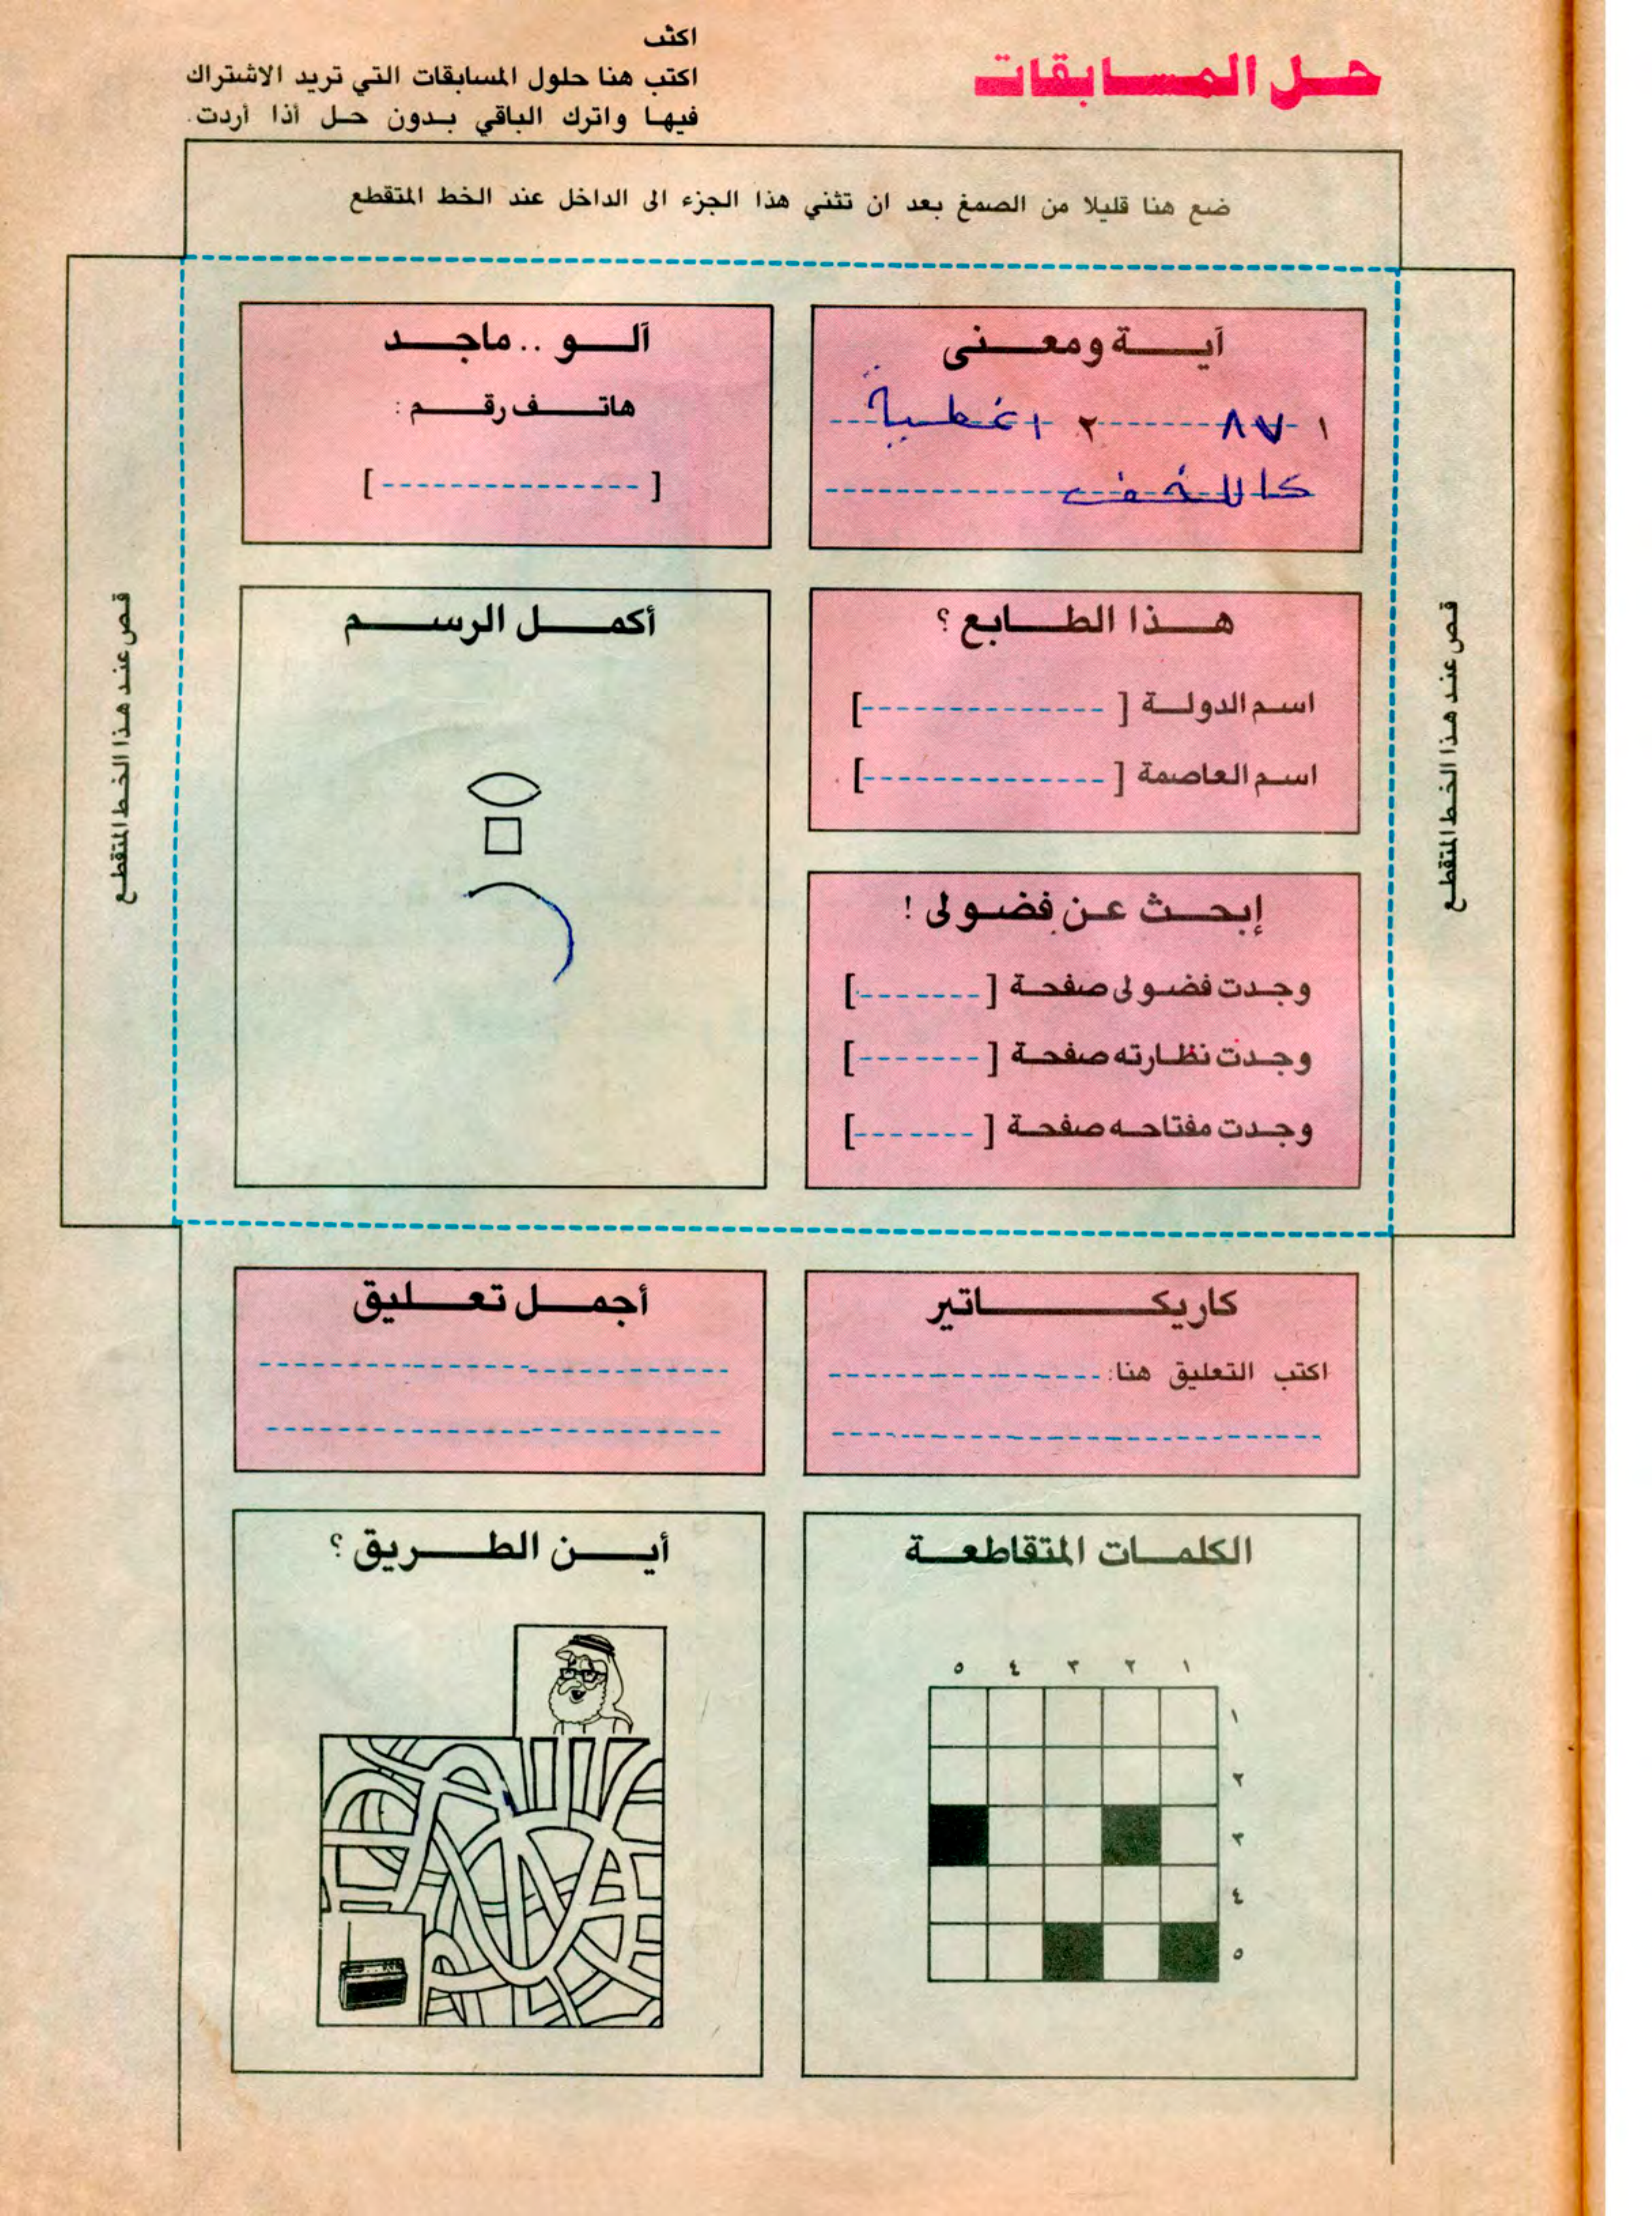 حل المسابقات
اكتب
اكتب هنا حلول المسابقات التي تريد الاشتراك
فيها واترك الباقي بدون حل أذا أردت.
ضع هنا قليلا من الصمغ بعد ان تثني هذا الجزء الى الداخل عند الخط المتقطع
قص عند هذا الخط المتقطع
آية ومعنى
١ ٧٨ ٢ اغطية
كاللخف
آلو .. ماجد
هاتف رقم :
[ ]
هذا الطابع ؟
اسم الدولة [ ]
اسم العاصمة [ ]
إبحث عن فضولى !
وجدت فضولى صفحة [ ]
وجدت نظارته صفحة [ ]
وجدت مفتاحه صفحة [ ]
أكمل الرسم
قص عند هذا الخط المتقطع
كاريكاتير
اكتب التعليق هنا:
أجمل تعليق
الكلمات المتقاطعة
١ ٢ ٣ ٤ ٥
١
٢
٣
٤
٥
أين الطريق ؟